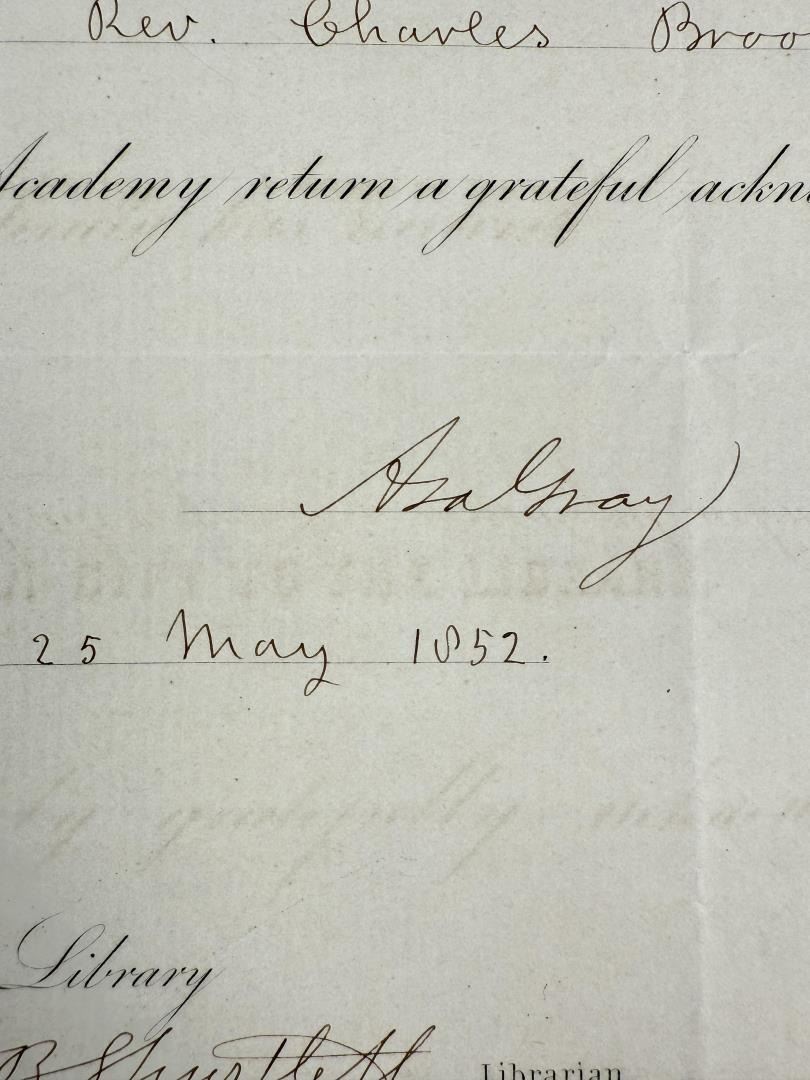 Rev. Charles Broo
Academy return a grateful ackn
Asa Gray
25 May 1852.
Library
B Shurtleff Librarian